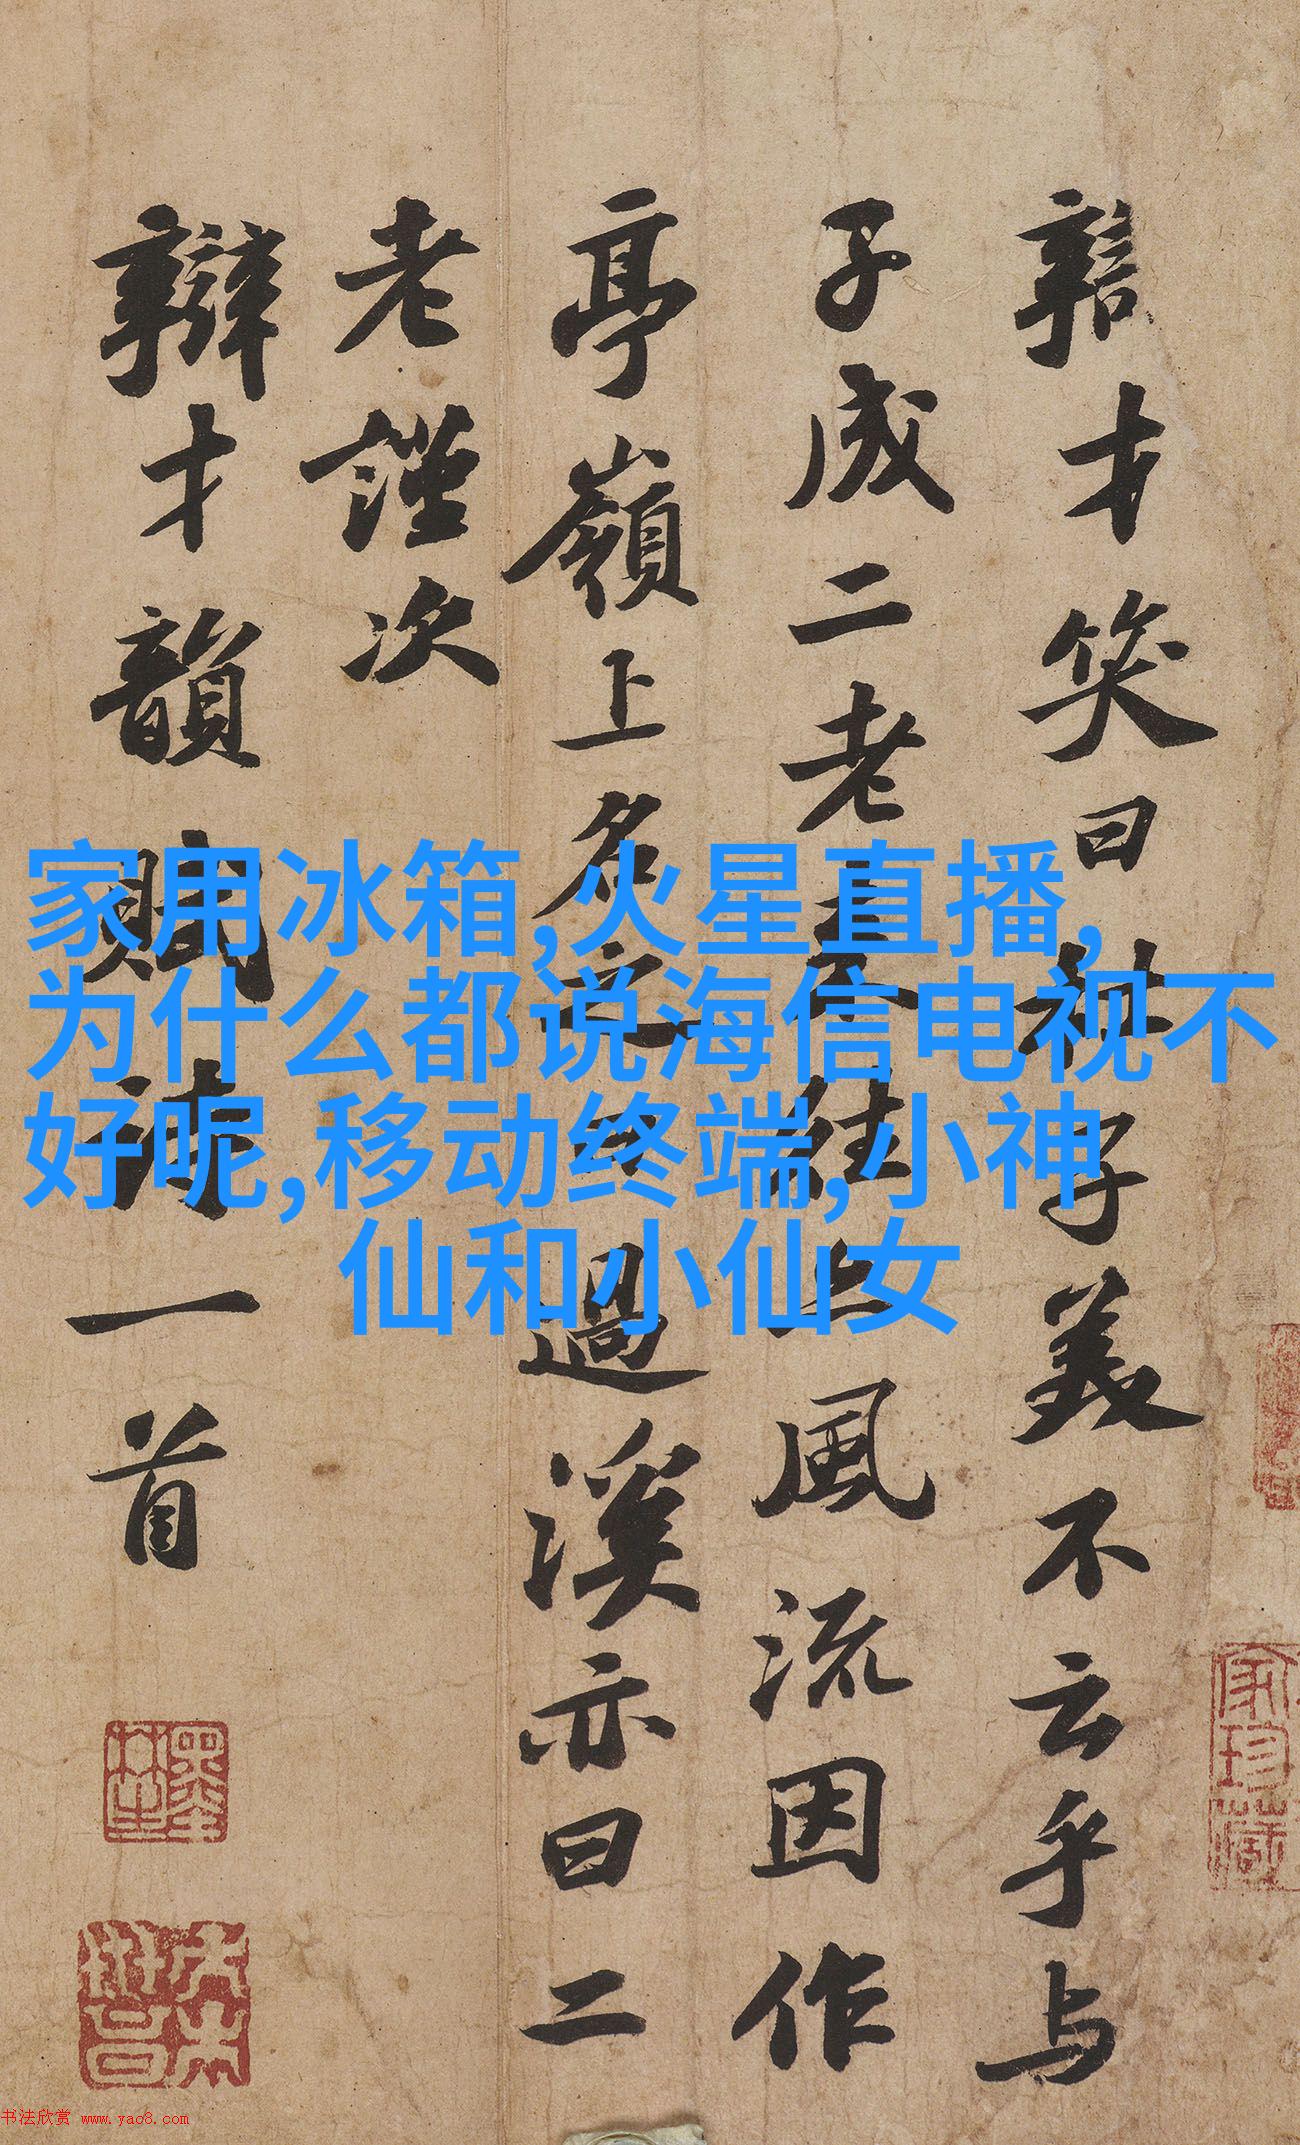 辯才笑曰杜子美不云乎与
子成二老来往亦風流因作
亭嶺上名之曰過溪亦曰二
老謹次
辯才韻賦詩一首
家用冰箱,火星直播,
为什么都说海信电视不
好呢,移动终端,小神
仙和小仙女
家珍藏
书法欣赏 www.yac8.com